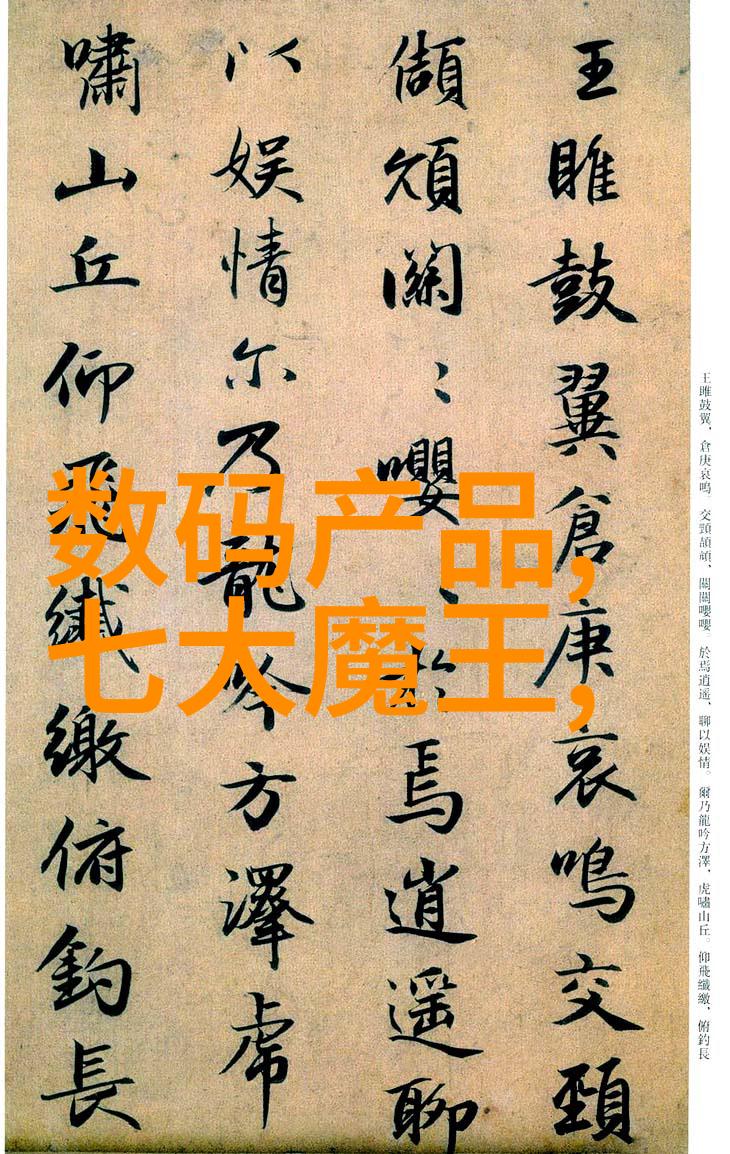 王雎鼓翼倉庚哀鳴交頸
頡頏關〻嚶〻於焉逍遥聊
以娱情尔乃龍吟方澤虎
嘯山丘仰飛纖繳俯釣長
数码产品,
七大魔王,
王雎鼓翼、倉庚哀鳴。交頸頡頏、關關嚶嚶。於焉逍遥、聊以娱情。爾乃龍吟方澤、虎嘯山丘。仰飛纖繳、俯釣長